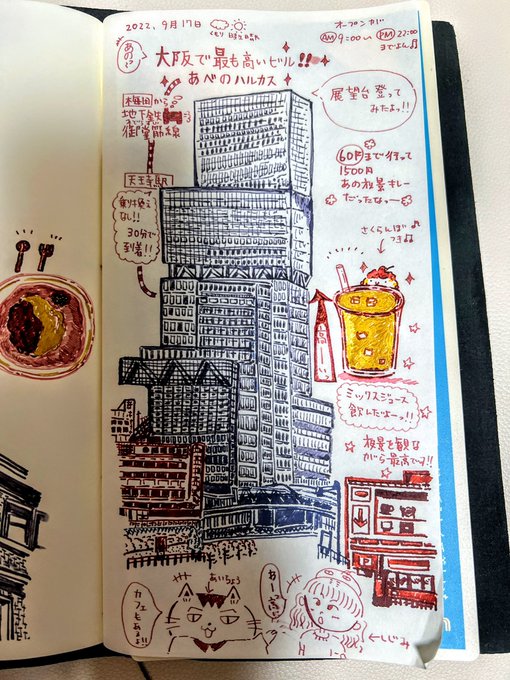 2022, 9月17日
くもり
オープンカド
AM 9:00〜 PM 22:00
までよん♬
あのっ
大阪で最も高いビル!!
あべのハルカス
展望台登って
みたよっ!!
梅田から
地下鉄
御堂筋線
60Fまで行って
1500円
あの夜景キレー
だったなっー
天王寺駅
乗り換え
なし!!
30分で
到着!!
さくらんぼ♪
つきよ
ミックスジュース
飲んだよーっ!!
夜景を観な
がら最高です!!
カフェも
あるよ!!
あいちょう
←しじみ